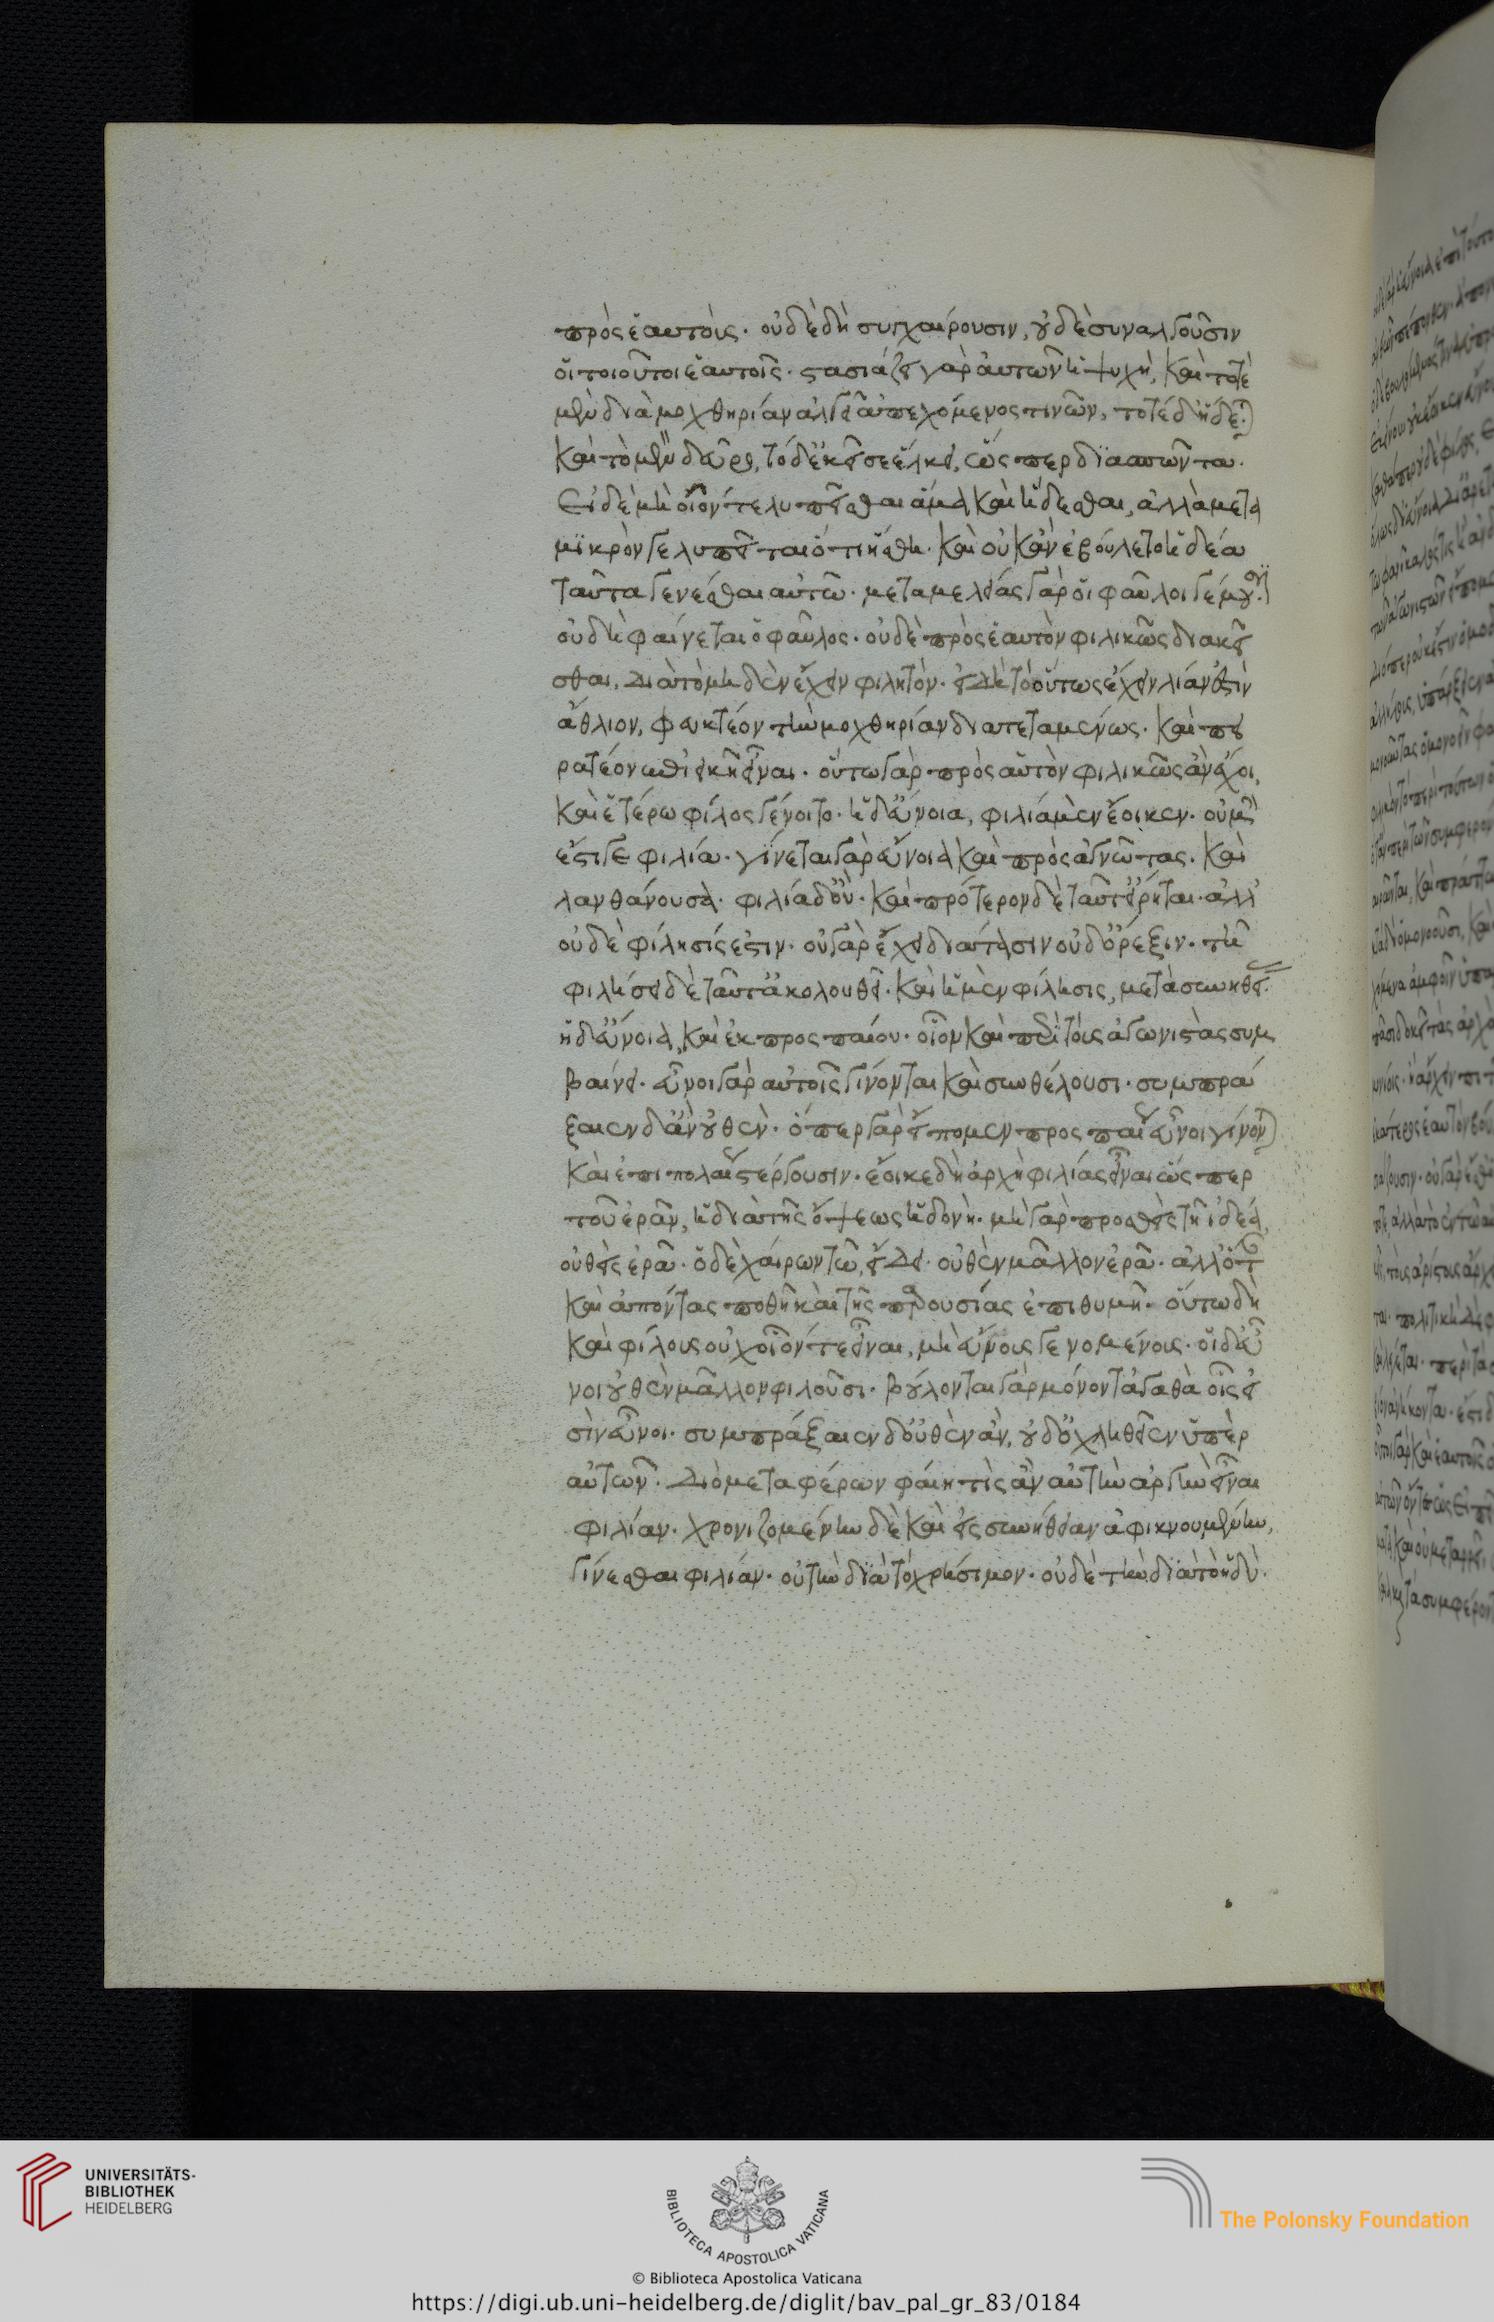 πρὸς ἑαυτοὺς. οὐδὲ δὴ συγχαίρουσιν, οὐδὲ συναλγοῦσιν
οἱ τοιοῦτοι ἑαυτοῖς. στασιάζει γὰρ αὐτῶν ἡ ψυχὴ, καὶ τὸ τὲ
μὲν διὰ μοχθηρίαν ἀλγεῖ ἀπεχόμενος τινῶν, τὸ τὲ δ' ἥδεται.
καὶ τὸ μὲν δεῦρο, τὸ δ' ἐκεῖσε ἕλκει, ὥσπερ διασπῶντα.
Εἰ δὲ μὴ οἷόν τε λυπεῖσθαι ἅμα καὶ ἥδεσθαι, ἀλλὰ μετὰ
μικρὸν γε λυπεῖται ὅτι ἥσθη. καὶ οὐκ ἂν ἐβούλετο ἡδέα
ταῦτα γενέσθαι αὐτῶ. μεταμελείας γὰρ οἱ φαῦλοι γέμουσι.
οὐ δὴ φαίνεται ὁ φαῦλος. οὐδὲ πρὸς ἑαυτὸν φιλικῶς διακεῖ
σθαι, διὰ τὸ μηδὲν ἔχειν φιλητόν. εἰ δὴ τὸ οὕτως ἔχειν λίαν ἐστὶν
ἄθλιον, φευκτέον τὴν μοχθηρίαν διατεταμένως. καὶ πει
ρατέον ἐπιεικῆ εἶναι. οὕτω γὰρ πρὸς αὑτὸν φιλικῶς ἂν ἔχοι,
καὶ ἑτέρω φίλος γένοιτο. ἡ δ' εὔνοια, φιλία μὲν ἔοικεν. οὐ μὴν
ἔστι γε φιλία. γίνεται γὰρ εὔνοια καὶ πρὸς ἀγνῶτας. καὶ
λανθάνουσα. φιλία δ' οὔ. καὶ πρότερον δὲ ταῦτ' εἴρηται. ἀλλ'
οὐδὲ φίλησίς ἐστιν. οὐ γὰρ ἔχει διάτασιν οὐδ' ὄρεξιν. τῆ
φιλήσει δὲ ταῦτ' ἀκολουθεῖ. καὶ ἡ μὲν φίλησις, μετὰ συνηθείας.
ἡ δ' εὔνοια, καὶ ἐκ προσπαίου. οἷον καὶ περὶ τοὺς ἀγωνιστὰς συμ
βαίνει. εὖνοι γὰρ αὐτοῖς γίνονται καὶ συνθέλουσι. συμπρά
ξαιεν δ' ἂν οὐθὲν. ὅπερ γὰρ εἴπομεν προσπαίως εὖνοι γίνονται
καὶ ἐπιπολαίως στέργουσιν. ἔοικε δὴ ἀρχὴ φιλίας εἶναι ὥσπερ
τοῦ ἐρᾶν, ἡ διὰ τῆς ὄψεως ἡδονή. μὴ γὰρ προησθεὶς τῆ ἰδέα,
οὐθεὶς ἐρᾶ. ὁ δὲ χαίρων τῶ, εἴδει. οὐθὲν μᾶλλον ἐρᾶ. ἀλλ' ὅταν
καὶ ἀπόντας ποθῆ καὶ τῆς παρουσίας ἐπιθυμῆ. οὕτω δὴ
καὶ φίλους οὐχ οἷόν τε εἶναι, μὴ εὔνοις γενομένοις. οἱ δ' εὖ
νοι οὐθὲν μᾶλλον φιλοῦσι. βούλονται γὰρ μόνον τἀγαθὰ οἷς εἰ
σὶν εὖνοι. συμπράξαιεν δ' οὐθὲν ἂν, οὐδ' ὀχληθεῖεν ὑπὲρ
αὐτῶν. διὸ μεταφέρων φαίη τὶς ἂν αὐτὴν ἀργὴν εἶναι
φιλίαν. χρονιζομένην δὲ καὶ εἰς συνήθειαν ἀφικνουμένην,
γίνεσθαι φιλίαν. οὐ τὴν διὰ τὸ χρήσιμον. οὐδὲ τὴν διὰ τὸ ἡδύ.
UNIVERSITÄTS-
BIBLIOTHEK
HEIDELBERG
BIBLIOTECA APOSTOLICA VATICANA
The Polonsky Foundation
© Biblioteca Apostolica Vaticana
https://digi.ub.uni-heidelberg.de/diglit/bav_pal_gr_83/0184